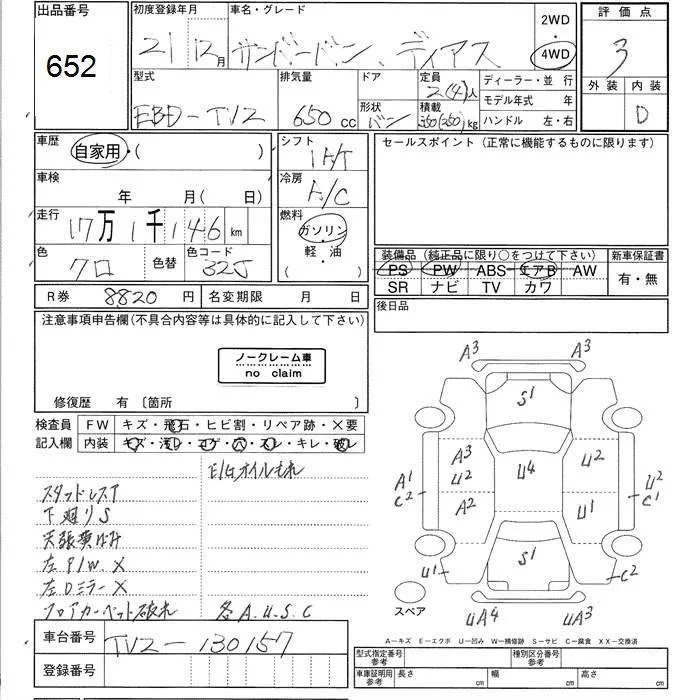 出品番号
652
初度登録年月
21 12月
車名・グレード
サンバーバン、ディアス
2WD
4WD
評価点
3
外装 内装
D
型式
EBD-TV2
排気量
650 cc
ドア
形状
バン
定員
2(4)人
積載
350(250)kg
ディーラー・並行
モデル年式 年
ハンドル 左・右
車歴
自家用・( )
シフト
車検
年 月( 日)
冷房
A/C
走行
17万1千146 km
燃料
ガソリン・
( 軽・油 )
色
クロ
色替
色コード
32J
セールスポイント(正常に機能するものに限ります)
装備品(純正品に限り○をつけて下さい)
PS PW ABS エアB AW
SR ナビ TV カワ
新車保証書
有・無
後日品
R券 8820 円
名変期限 月 日
注意事項申告欄(不具合内容等は具体的に記入して下さい)
ノークレーム車
no claim
修復歴 有 〔箇所 〕
検査員
記入欄
FW キズ・飛石・ヒビ割・リペア跡・×要
内装 キズ・汚レ・コゲ・穴・スレ・キレ・破レ
E/Gオイルもれ
スタッドレスT
下廻りS
左P/W X
左Dミラー X
フロアカーペット破れ
各A.U.S.C
車台番号
TV2-130157
登録番号
A3 A3
S1
A3
U2
A2
U4
U2
U1
A1
C2
U2
C1
S1
U1
C2
スペア
UA4
UA3
A-キズ E-エクボ U-凹み W-補修跡 S-サビ C-腐食 XX-交換済
型式指定番号
参考
種別区分番号
参考
車庫証明用
参考
長さ cm 幅 cm 高さ cm